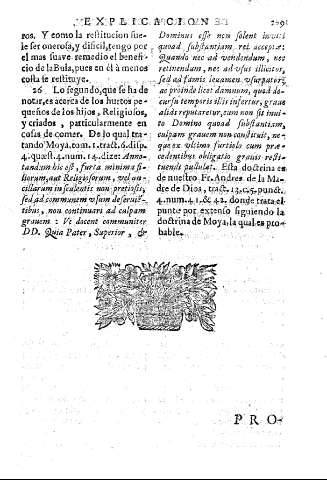 EXPLICACION DE
ros. Y como la restitucion sue-
le ser onerosa, y dificil, tengo por
el mas suave remedio el benefi-
cio de la Bula, pues con èl à menos
costa se restituye.
26 Lo segundo, que se ha de
notar, es acerca de los hurtos pe-
queños de los hijos, Religiosos,
y criados, particularmente en
cosas de comer. De lo qual tra-
tando Moya, tom. 1. tract. 6. disp.
4. quæst. 4. num. 14. dize: Anno-
tandum hic est, furta minima fi-
liorum, aut Religiosorum, vel an-
cillarum in sculentis non pretiosis,
sed ad communem vsum deservië-
tibus, non continuari ad culpam
grauem: Vt docent communiter
DD. Quia Pater, Superior, &
Dominus esse non solent inviti
quoad substantiam rei acceptæ:
Quando nec ad vendendum, nec
retinendum, nec ad vsus illicitos,
sed ad famis leuamen vsurpatur,
ac proinde licet damnum, quod de-
cursu temporis illis infertur, graue
aliàs reputaretur, cum non sit inui-
to Domino quoad substantiam,
culpam grauem non constituit, ne-
que ex vltimo furtiuo cum præ-
cedentibus obligatio grauis resti-
tuendi pullulat. Esta doctrina es
de nuestro Fr. Andres de la Ma-
dre de Dios, tract. 13. c. 5. punct.
4. num. 41. & 42. donde trata el
punto por extenso siguiendo la
doctrina de Moya, la qual es pro-
bable.
PRO-